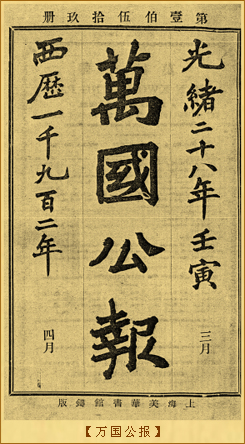 第壹伯伍拾玖冊
光緒二十八年壬寅
三月
萬國公報
西歷一千九百二年
四月
上海美華書館鑄版
【万国公报】